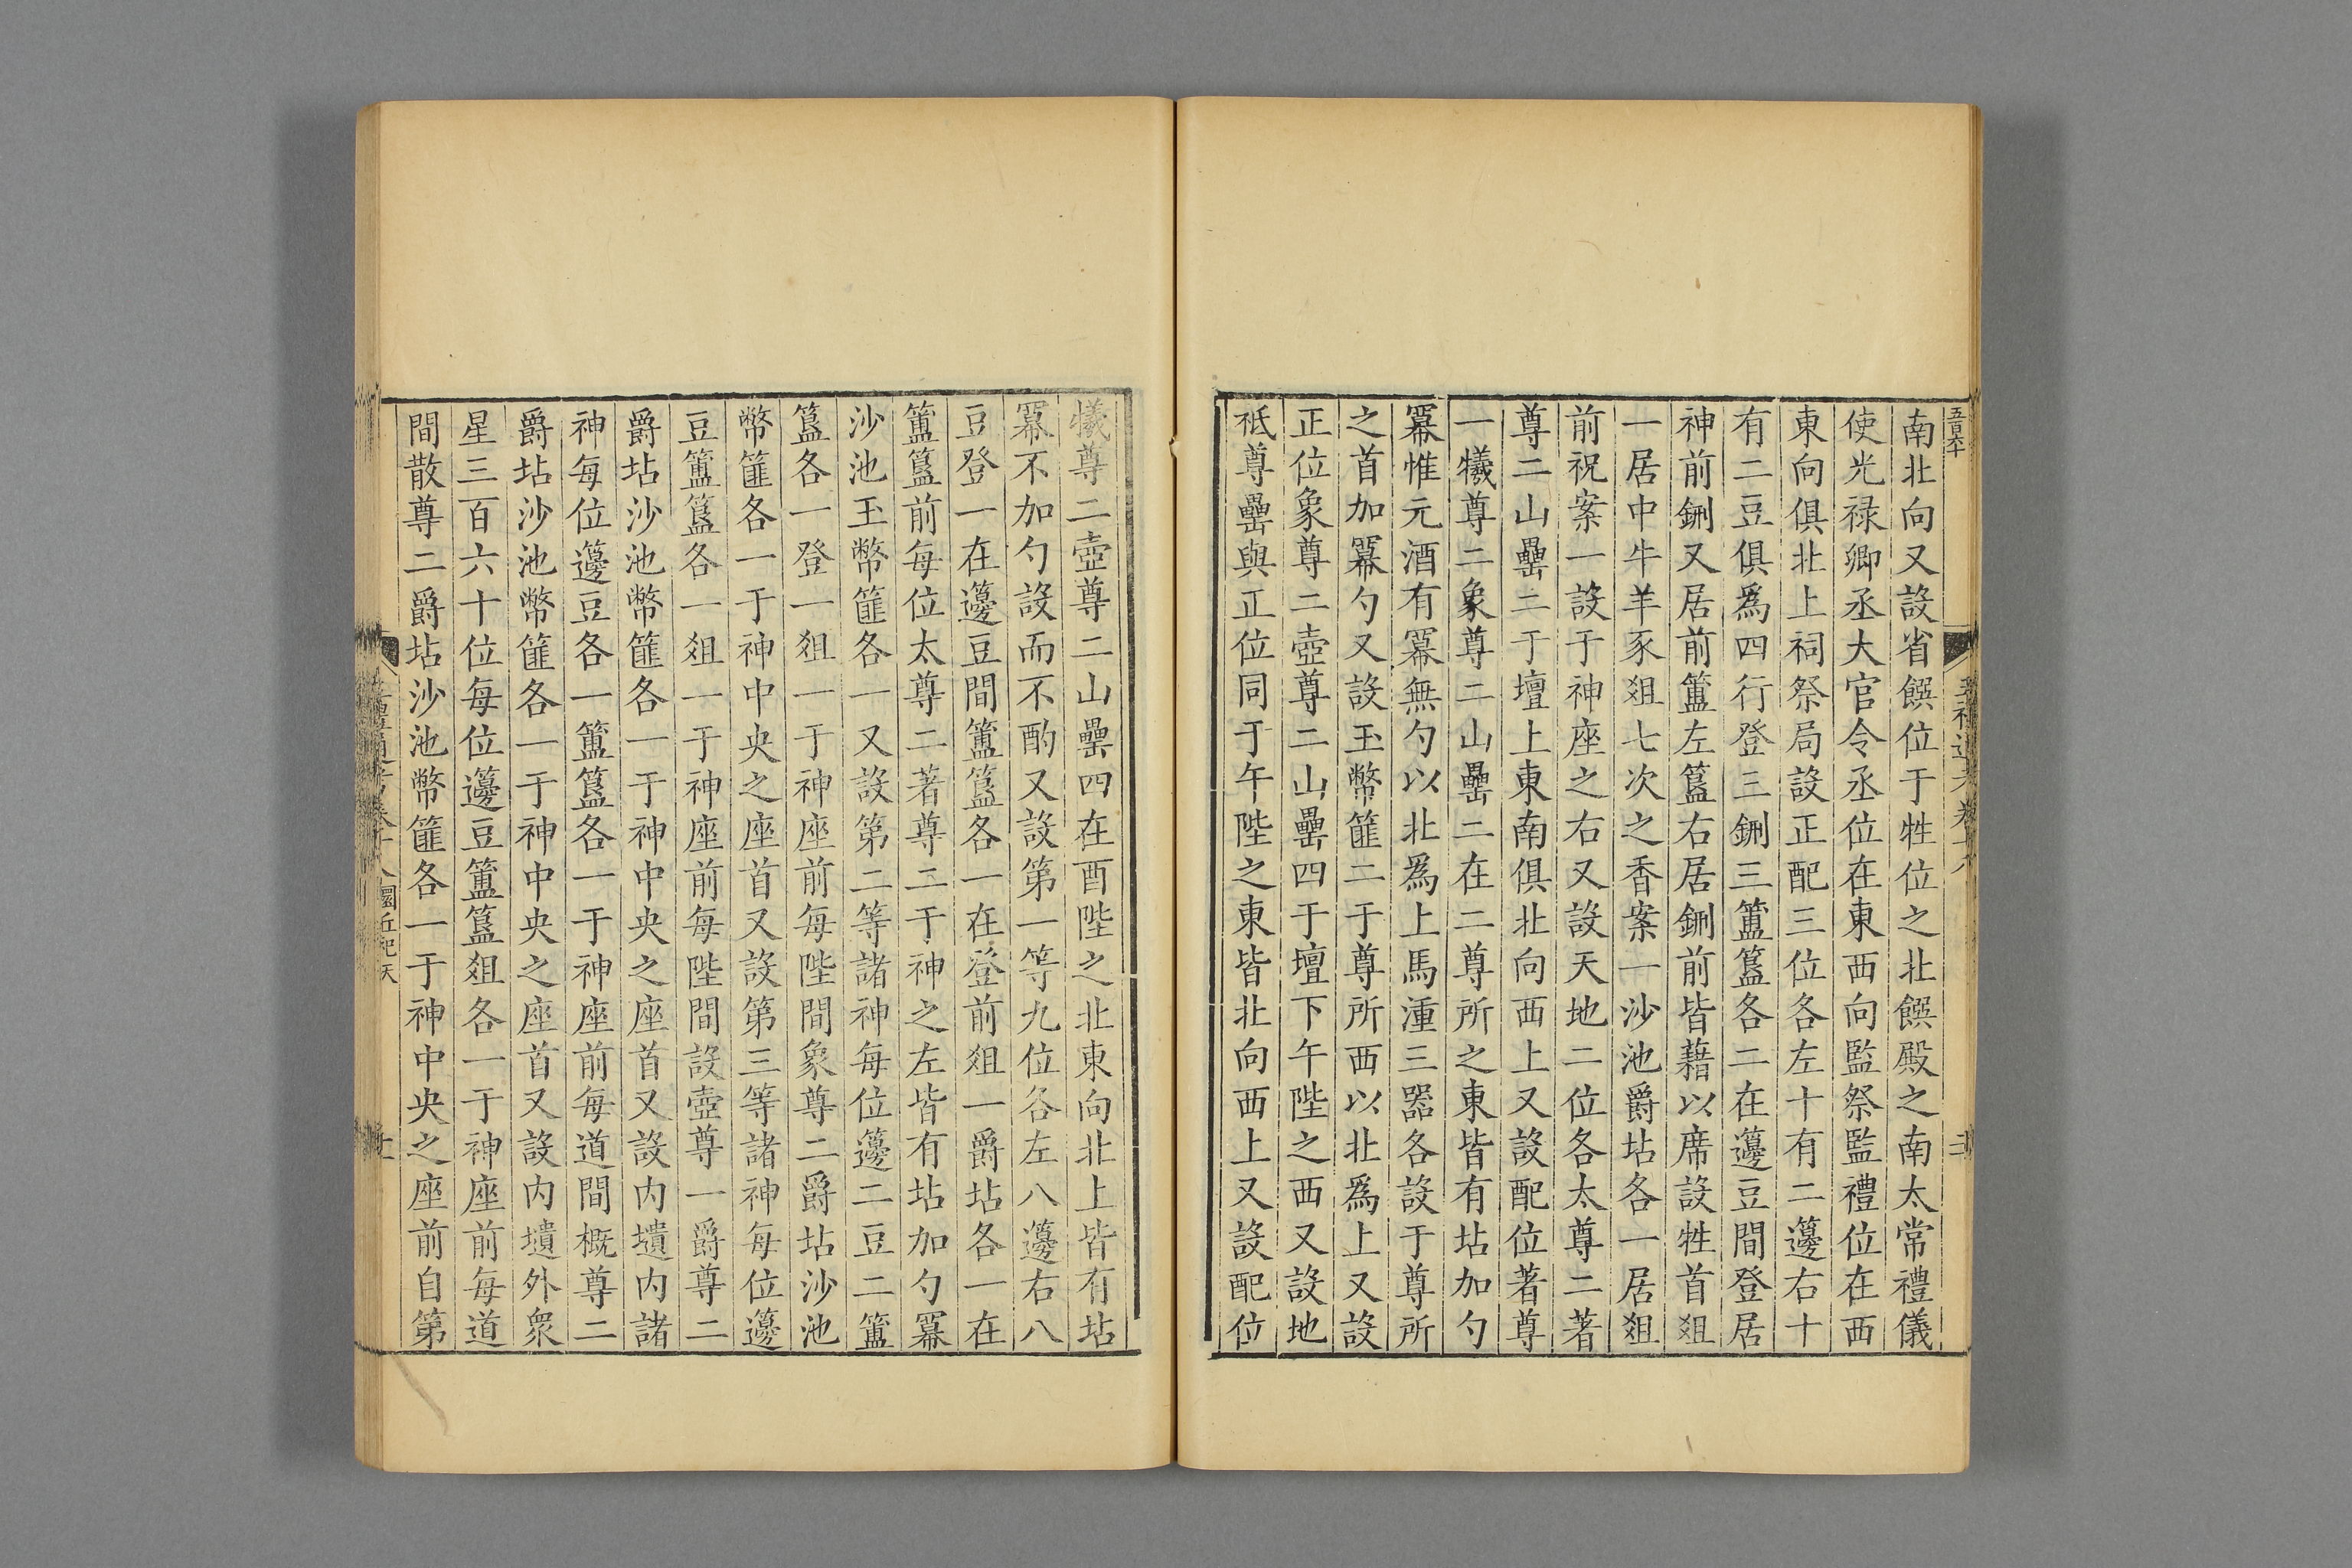 南北向又設省饌位于牲位之北饌殿之南太常禮儀
使光禄卿丞大官令丞位在東西向監祭監禮位在西
東向俱北上祠祭局設正配三位各左十有二籩右十
有二豆俱爲四行登三鉶三簠簋各二在籩豆間登居
神前鉶又居前簠左簋右居鉶前皆藉以席設牲首俎
一居中牛羊豕俎七次之香案一沙池爵坫各一居俎
前祝案一設于神座之右又設天地二位各太尊二著
尊二山罍二于壇上東南俱北向西上又設配位著尊
一犧尊二象尊二山罍二在二尊所之東皆有坫加勺
冪惟元酒有冪無勺以北爲上馬湩三器各設于尊所
之首加冪勺又設玉幣篚二于尊所西以北爲上又設
正位象尊二壺尊二山罍四于壇下午陛之西又設地
祇尊罍與正位同于午陛之東皆北向西上又設配位
犧尊二壺尊二山罍四在酉陛之北東向北上皆有坫
冪不加勺設而不酌又設第一等九位各左八籩右八
豆登一在籩豆間簠簋各一在登前俎一爵坫各一在
簠簋前每位太尊二著尊二于神之左皆有坫加勺冪
沙池玉幣篚各一又設第二等諸神每位籩二豆二簠
簋各一登一俎一于神座前每陛間象尊二爵坫沙池
幣篚各一于神中央之座首又設第三等諸神每位籩
豆簠簋各一俎一于神座前每陛間設壺尊一爵尊二
爵坫沙池幣篚各一于神中央之座首又設内壝内諸
神每位籩豆各一簠簋各一于神座前每道間概尊二
爵坫沙池幣篚各一于神中央之座首又設内壝外衆
星三百六十位每位籩豆簠簋俎各一于神座前每道
間散尊二爵坫沙池幣篚各一于神中央之座前自第